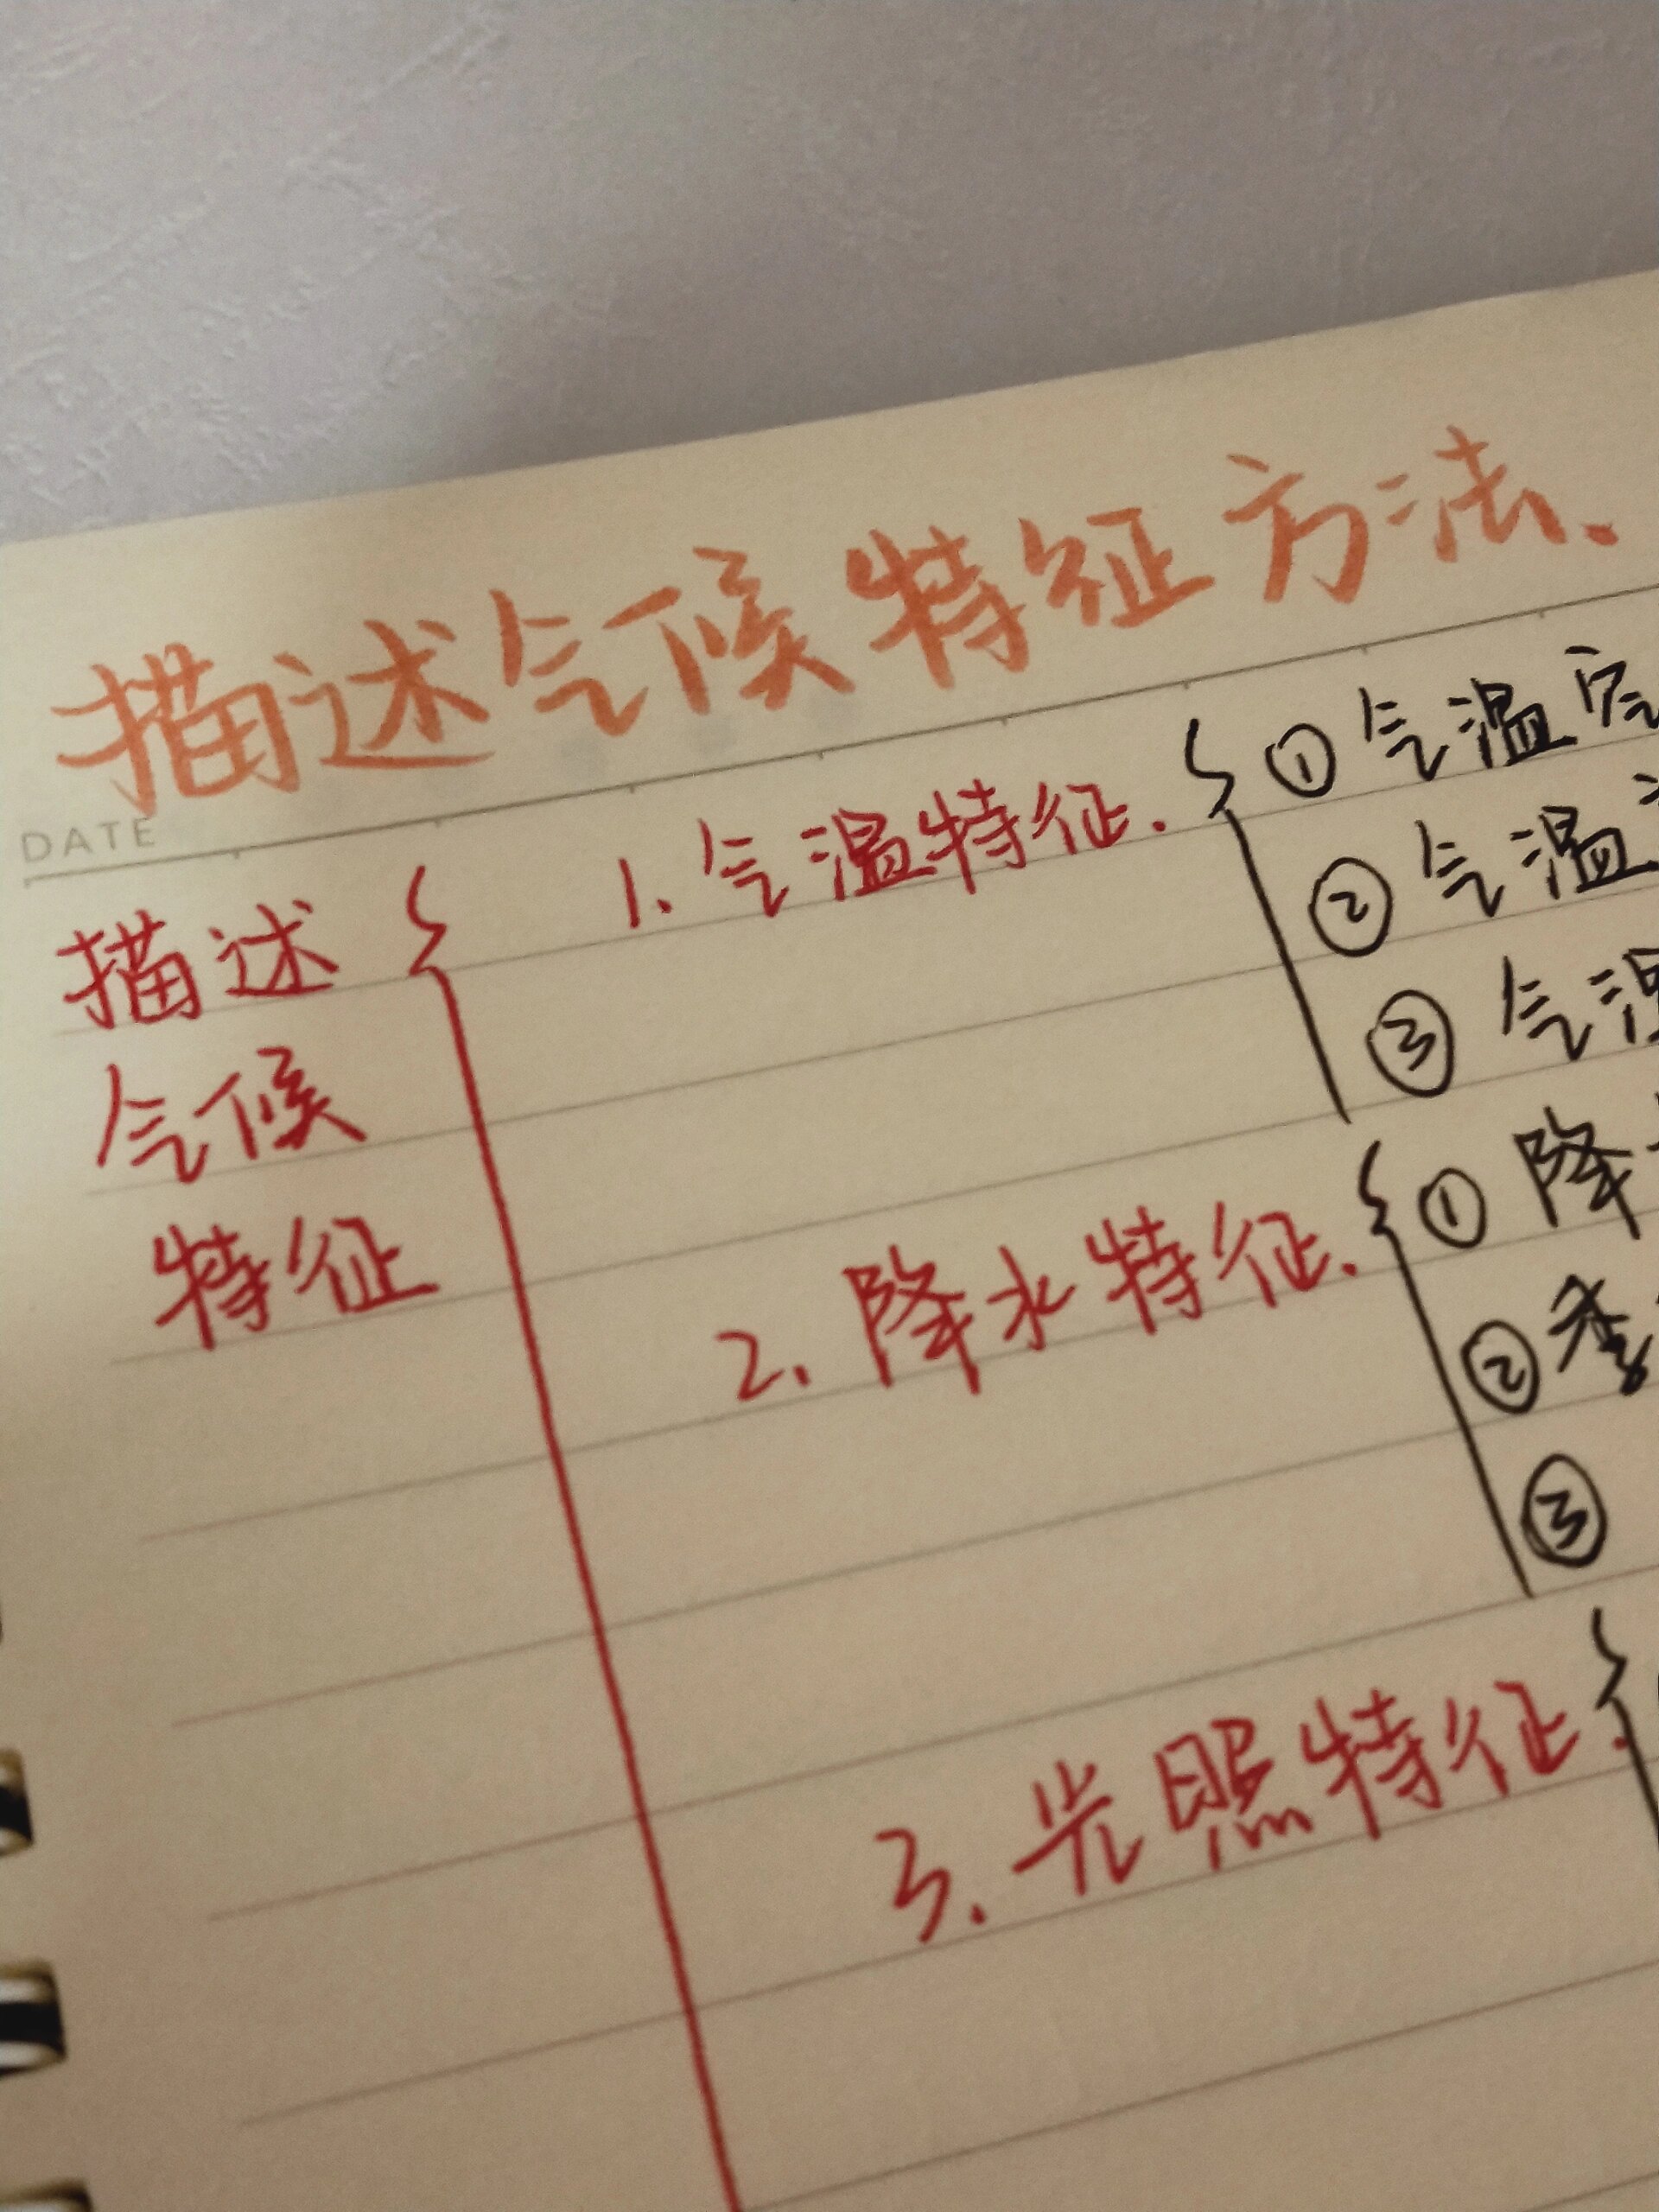 描述气候特征方法.
DATE
描述
气候
特征
1. 气温特征.
① 气温
② 气温
③ 气温
2. 降水特征.
① 降
② 季
③
3. 光照特征.